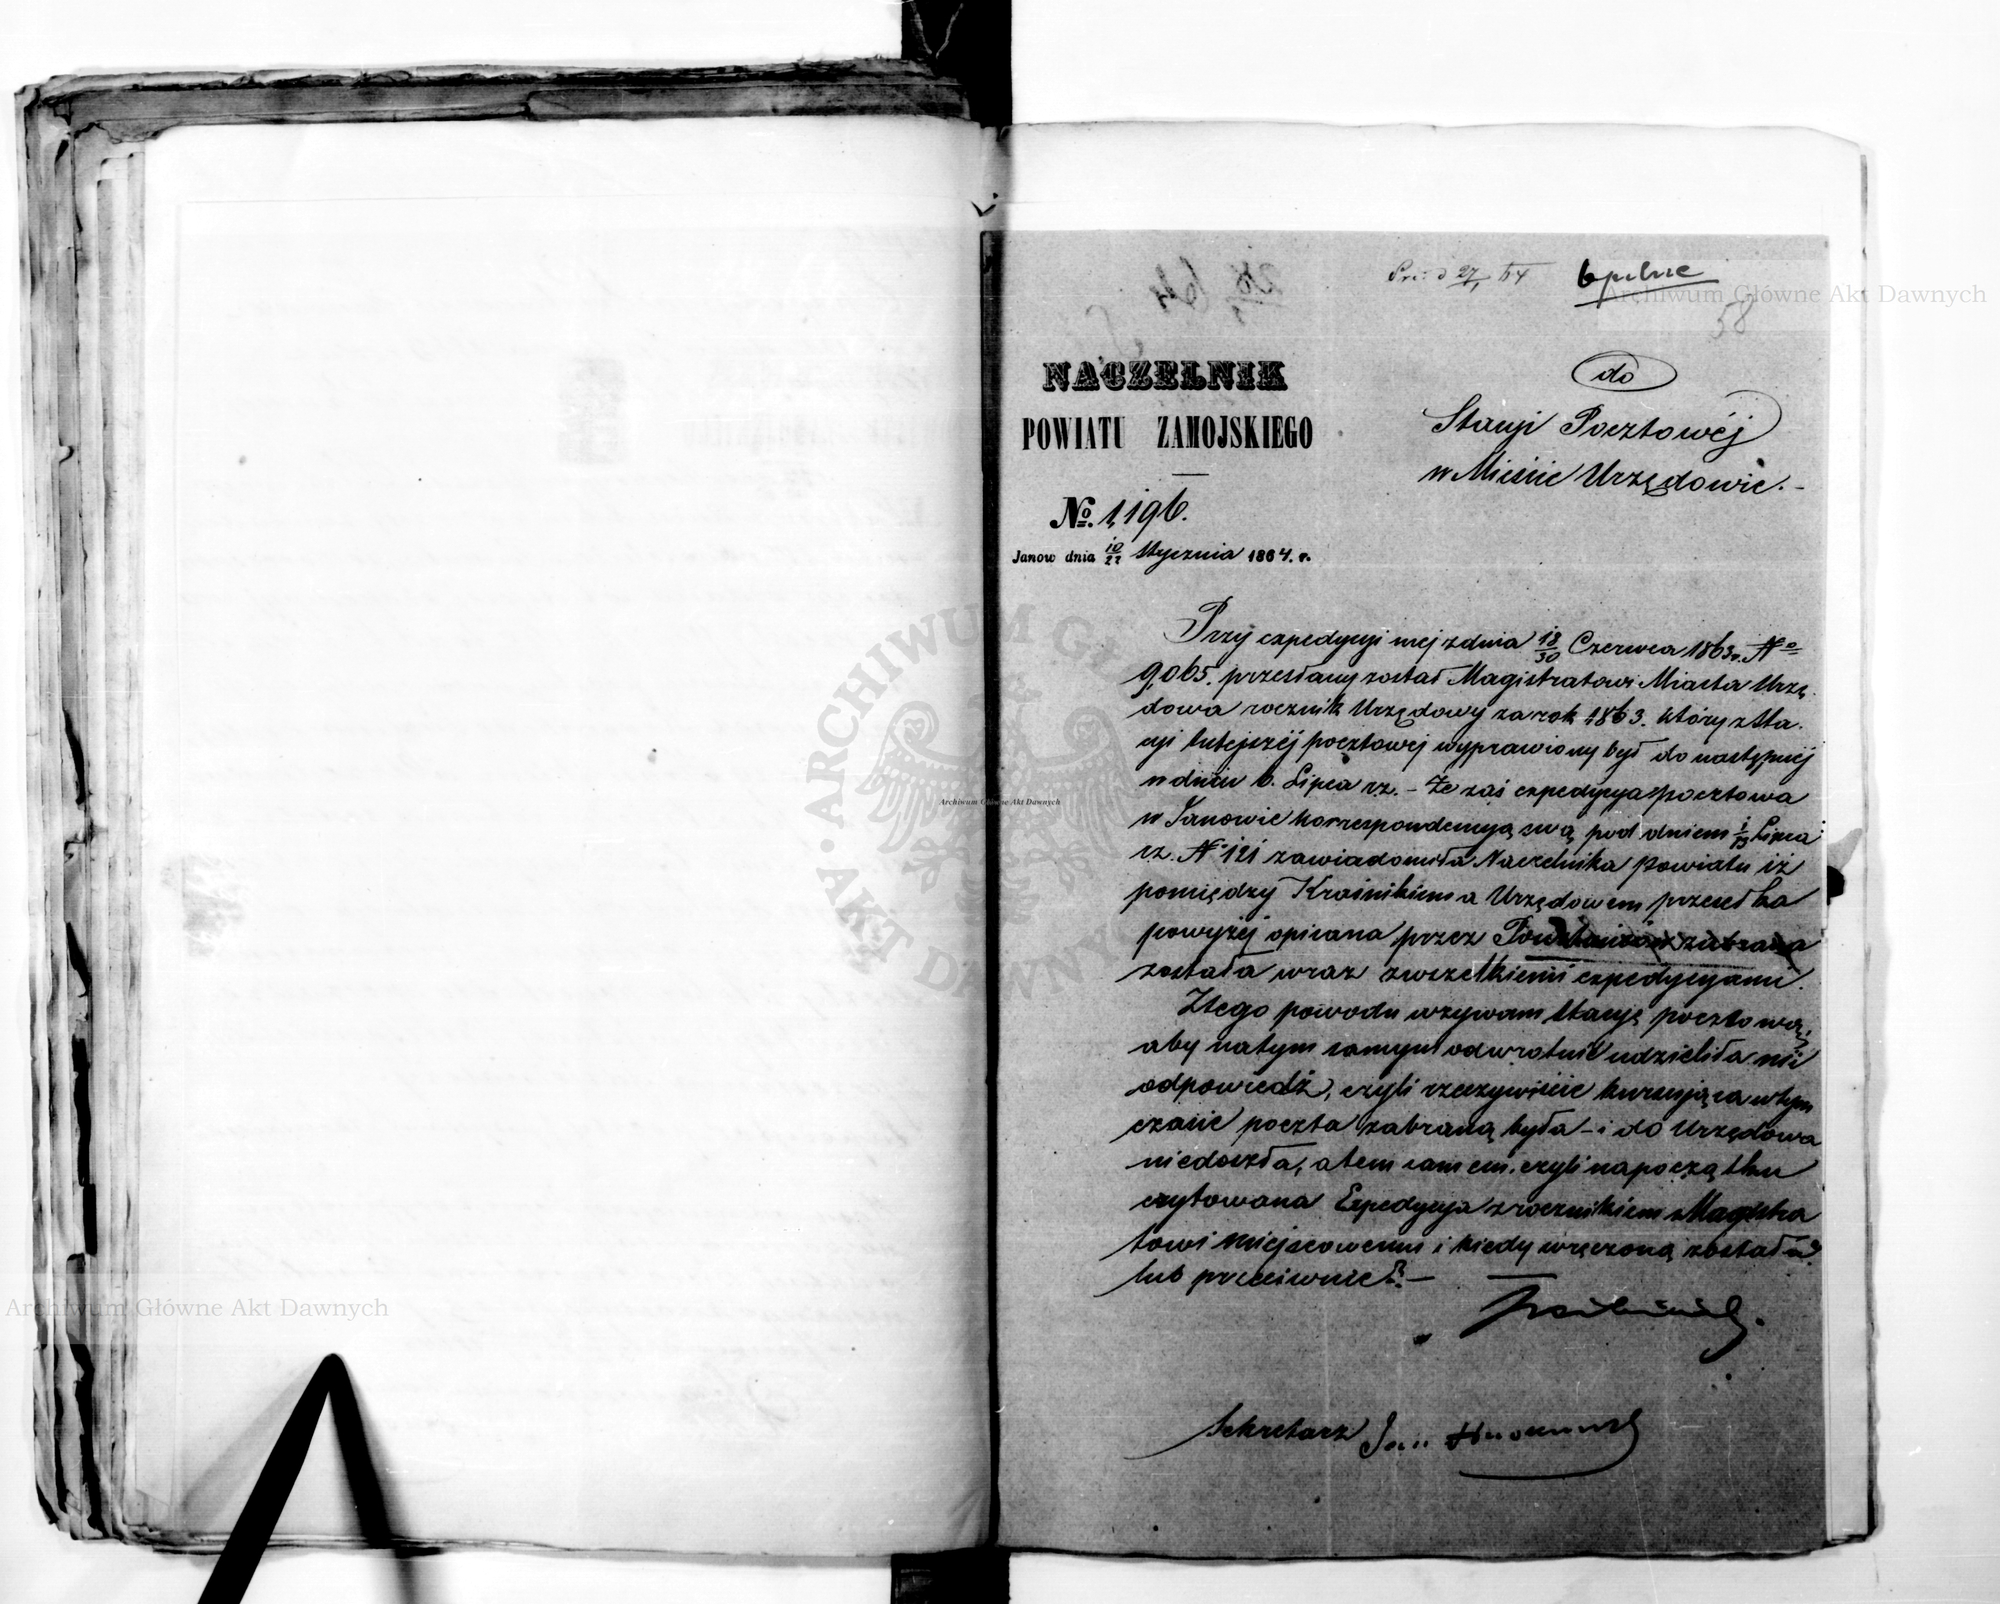 Pre: d 27/1 64
pilne
58
NACZELNIK
POWIATU ZAMOJSKIEGO
№. 1,196.
Janow dnia 10/22 Stycznia 1864. r.
do
Stacyi Pocztowéj
w Mieście Urzędowie.-
Przy expedycyi mej z dnia 18/30 Czerwca 1863 r. No
9,065. przesłany został Magistratowi Miasta Urzę
dowa rocznik Urzędowy za rok 1863. który z Sta.
cyi tutejszéj pocztowej wyprawiony był do następnéj
w dniu 6. Lipca r.z. - Że zaś expedycya pocztowa
w Janowie korrespondencyą swą pod dniem 1/13 Lipca
r.z. No 121 zawiadomiła Naczelnika Powiatu iż
pomiędzy Kraśnikiem a Urzędowem przesełka
powyżéj opisana przez zabrana
została wraz z wszelkiemi expedycyami.
Z tego powodu wzywam Stacyę pocztową,
aby na tym samym odwrotnie udzieliła mi
odpowiedź, czyli rzeczywiście kursująca w tym
czasie poczta zabraną była - i do Urzędowa
niedoszła, a tem samem, czyli na początku
cytowana Expedycya z rocznikiem Magistra
towi miejscowemu i kiedy wręczoną została
lub przeciwnie?.-
Sekretarz Jan
Archiwum Główne Akt Dawnych
Archiwum Główne Akt Dawnych
Archiwum Główne Akt Dawnych
ARCHIWUM GŁ
AKT DAWNYCH